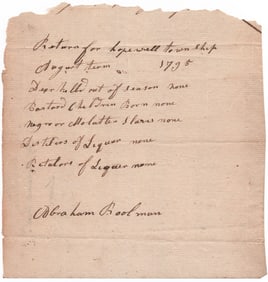 Return for hopewell town ship
August term 1795
Dear killed out of season none
Bastord Children Born none
Negro or Molatto Slaves none
Distilers of Liquor none
Retalors of Liquor none
Abraham Roolman